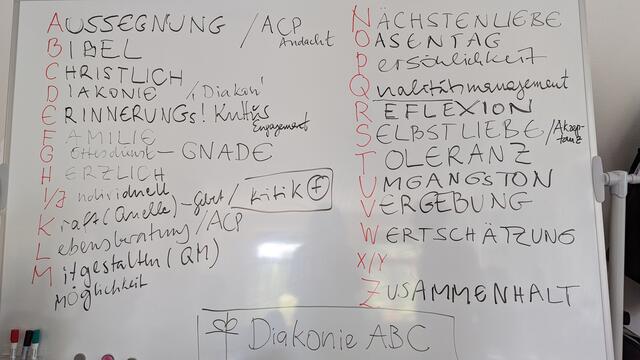 AUSSEGNUNG / ACP
Andacht
BIBEL
CHRISTLICH
DIAKONIE /"Diakon"
ERINNERUNGS! Kultus
Engagement
FAMILIE
Gottesdienst - GNADE
HERZLICH
I/J ndividuell
Kraft (Quelle) - Gebet / Kritik f
Lebensberatung / ACP
Mitgestalten (QM)
möglichkeit
NÄCHSTENLIEBE
OASENTAG
Persönlichkeit
Qualitätsmanagement
REFLEXION
SELBSTLIEBE / Akzep-
tanz
TOLERANZ
UMGANGSTON
VERGEBUNG
WERTSCHÄTZUNG
X/Y
ZUSAMMENHALT
Diakonie ABC